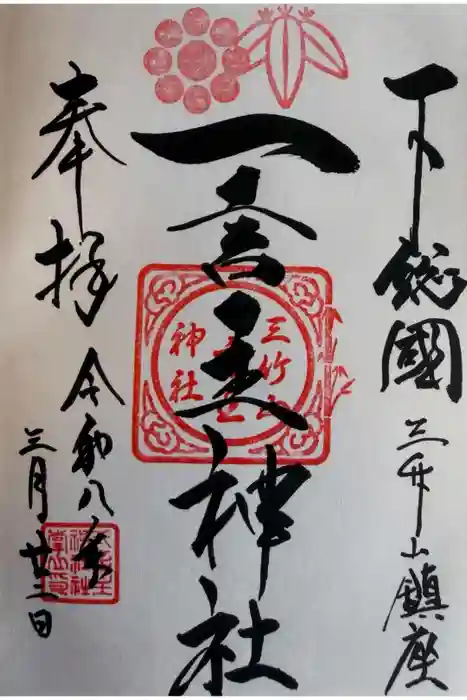 下総國三竹山鎮座
一言主神社
奉拝
令和八年
三月廿二日
三竹山
神社